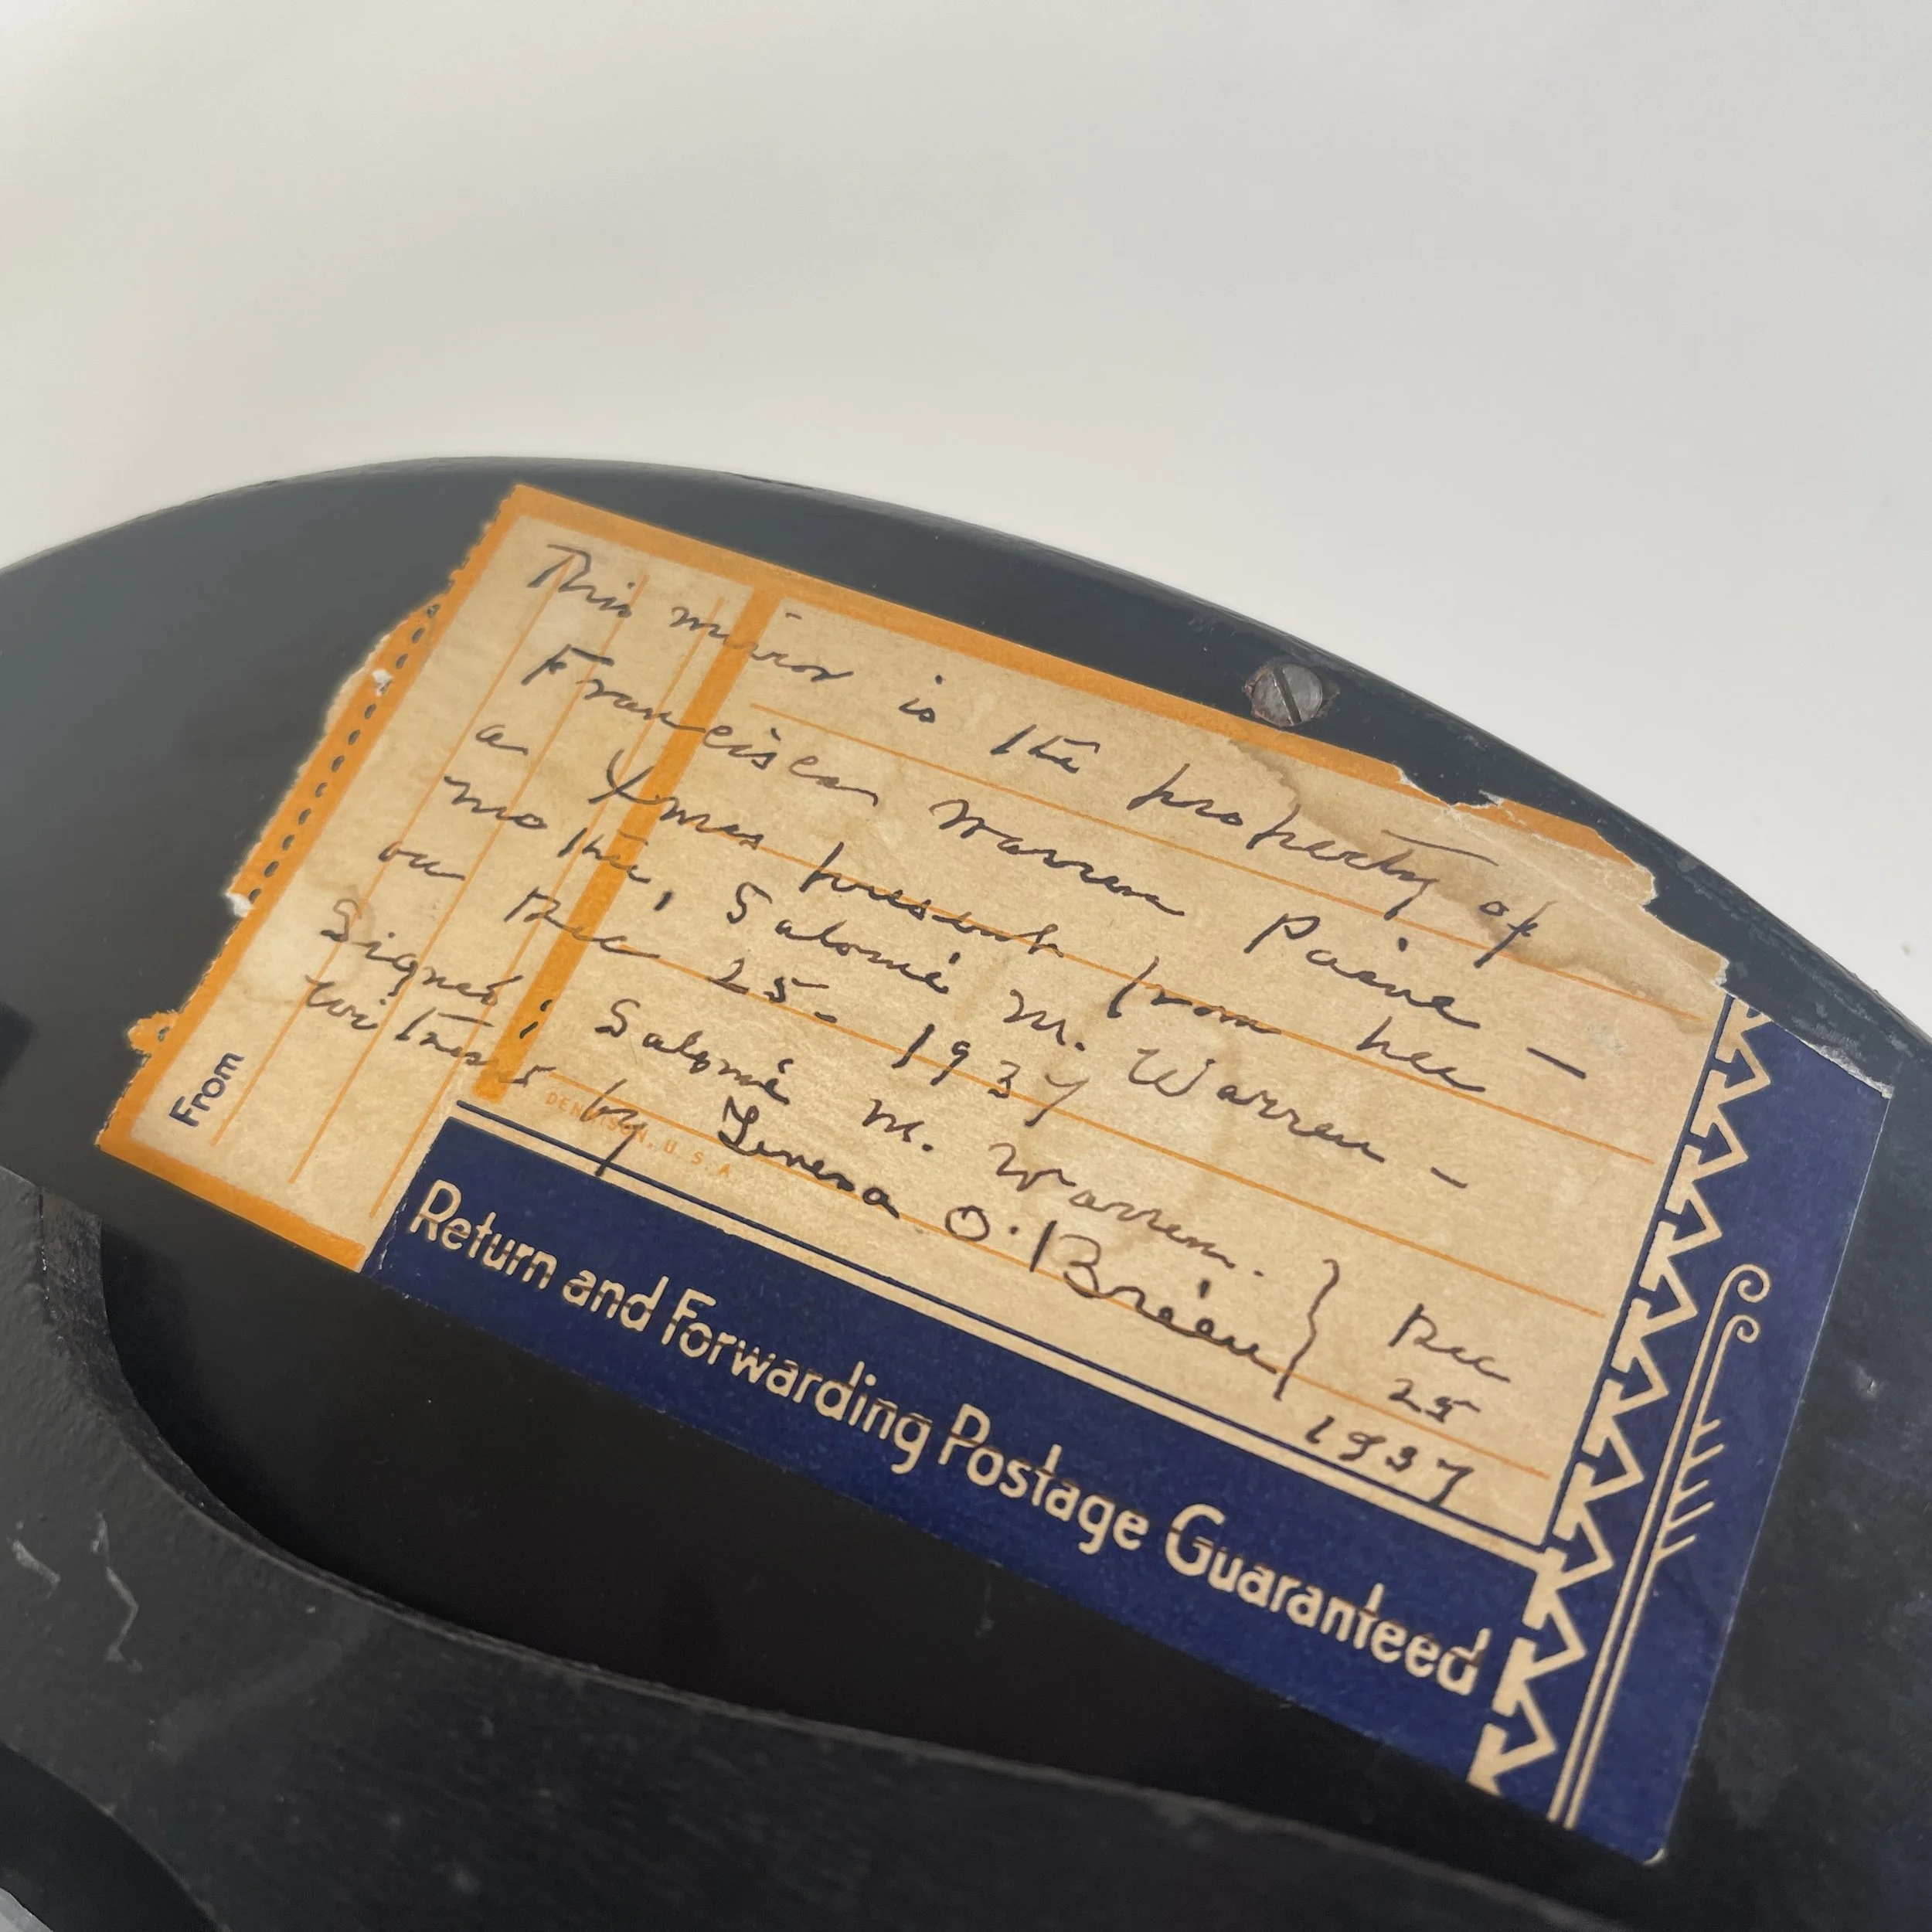 This mirror is the property of
Francisca Warren Paine —
a Xmas present from her
mother, Salomé M. Warren —
on Dec 25 - 1937
Signed: Salomé M. Warren.
witness by Teresa O'Brien } Dec
25
1937
From
DENNISON, U.S.A.
Return and Forwarding Postage Guaranteed